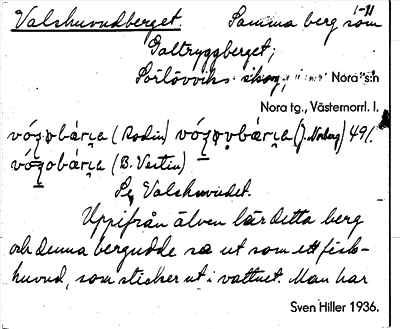 1-91
Valshuvudberget. Samma berg som
Galtryggberget;
Sörlövviks skog, Nora s:n
Nora tg., Västernorrl. l.
(Rodin) (J. Norberg) 491.
(B. Vestin)
Se Valshuvudet.
Uppifrån älven lär detta berg
och denna bergudde se ut som ett fisk-
huvud, som sticker ut i vattnet. Man har
Sven Hiller 1936.